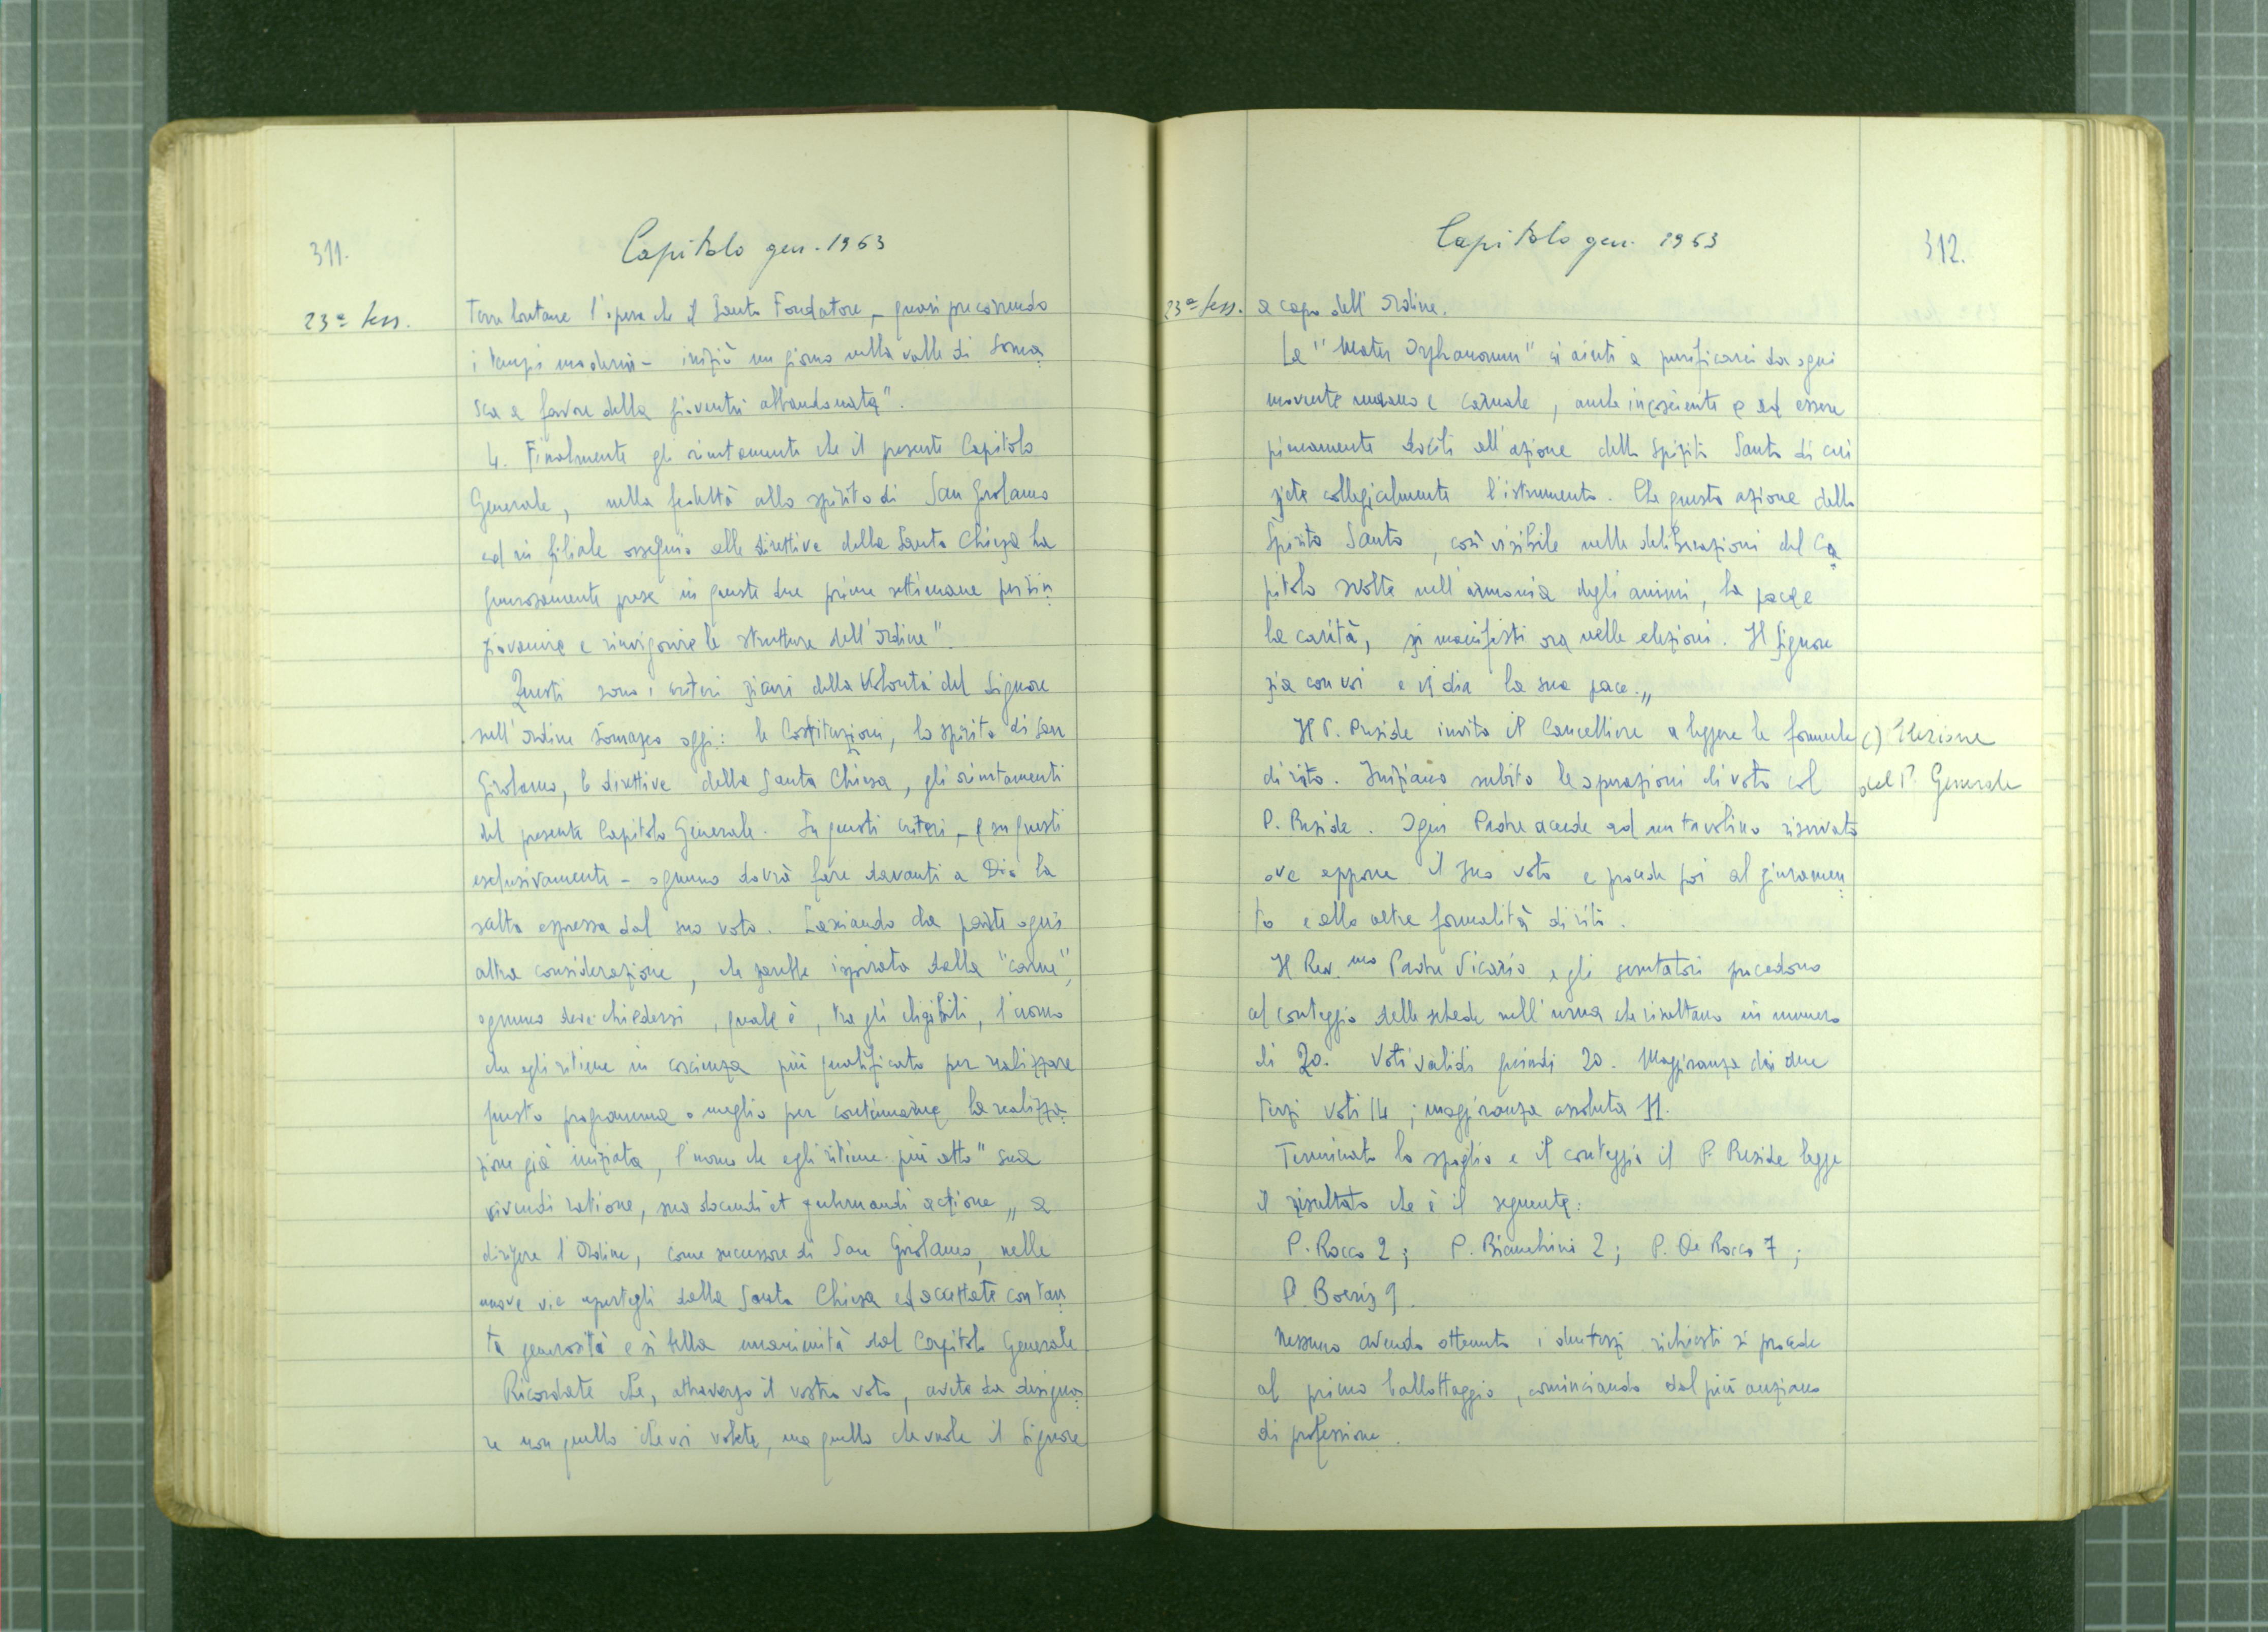 311.
Capitolo gen. 1963
23ª sess.
Terre lontane l'opera che il Santo Fondatore, - quasi precorrendo
i tempi moderni - iniziò un giorno nella valle di Soma
sca a favore della gioventù abbandonata".
4. Finalmente gli orientamenti che il presente Capitolo
Generale, nella fedeltà allo spirito di San Girolamo
ed in filiale ossequio alle direttive della Santa Chiesa ha
generosamente prese in queste due prime settimane per rin
giovanire e rinvigorire le strutture dell'Ordine".
Questi sono i criteri sicuri della Volontà del Signore
sull'Ordine Somasco oggi: le Costituzioni, lo spirito di San
Girolamo, le direttive della Santa Chiesa, gli orientamenti
del presente Capitolo Generale. Su questi criteri, - e su questi
esclusivamente - ognuno dovrà fare davanti a Dio la
scelta espressa dal suo voto. Lasciando da parte ogni
altra considerazione, che sarebbe ispirata dalla "carne",
ognuno deve chiedersi, quale è, tra gli eligibili, l'uomo
che egli ritiene in coscienza più qualificato per realizzare
questo programma o meglio per continuarne la realizza
zione già iniziata, l'uomo che egli ritiene più atto "sua
vivendi ratione, sua docendi et gubernandi actione" a
dirigere l'Ordine, come successore di San Girolamo, nelle
nuove vie apertegli dalla Santa Chiesa ed accettate con tan
ta generosità e sì bella unanimità dal Capitolo Generale.
Ricordate che, attraverso il vostro voto, avete da designa
re non quello che voi volete, ma quello che vuole il Signore
Capitolo gen. 1963
312.
23ª sess.
a capo dell'Ordine.
La "Mater Orphanorum" ci aiuti a purificarci da ogni
movente umano e carnale, anche incosciente e ad essere
pienamente docili all'azione dello Spirito Santo di cui
siete collegialmente l'istrumento. Che questa azione dello
Spirito Santo, così visibile nelle deliberazioni del Ca
pitolo svolte nell'armonia degli animi, la pace e
la carità, si manifesti ora nelle elezioni. Il Signore
sia con voi e vi dia la sua pace."
Il P. Preside invita il Cancelliere a leggere le formule
c) Elezione
del P. Generale
di rito. Iniziano subito le operazioni di voto col
P. Preside. Ogni Padre accede ad un tavolino riservato
ove appone il suo voto e procede poi al giuramen
to e alle altre formalità di rito.
Il Rev.mo Padre Vicario e gli scrutatori procedono
al conteggio delle schede nell'urna che risultano in numero
di 20. Voti validi quindi 20. Maggioranza dei due
terzi voti 14; maggioranza assoluta 11.
Terminato lo spoglio e il conteggio il P. Preside legge
il risultato che è il seguente:
P. Rocco 2; P. Bianchini 2; P. De Rocco 7;
P. Boeris 9.
Nessuno avendo ottenuto i due terzi richiesti si procede
al primo ballottaggio, cominciando dal più anziano
di professione.